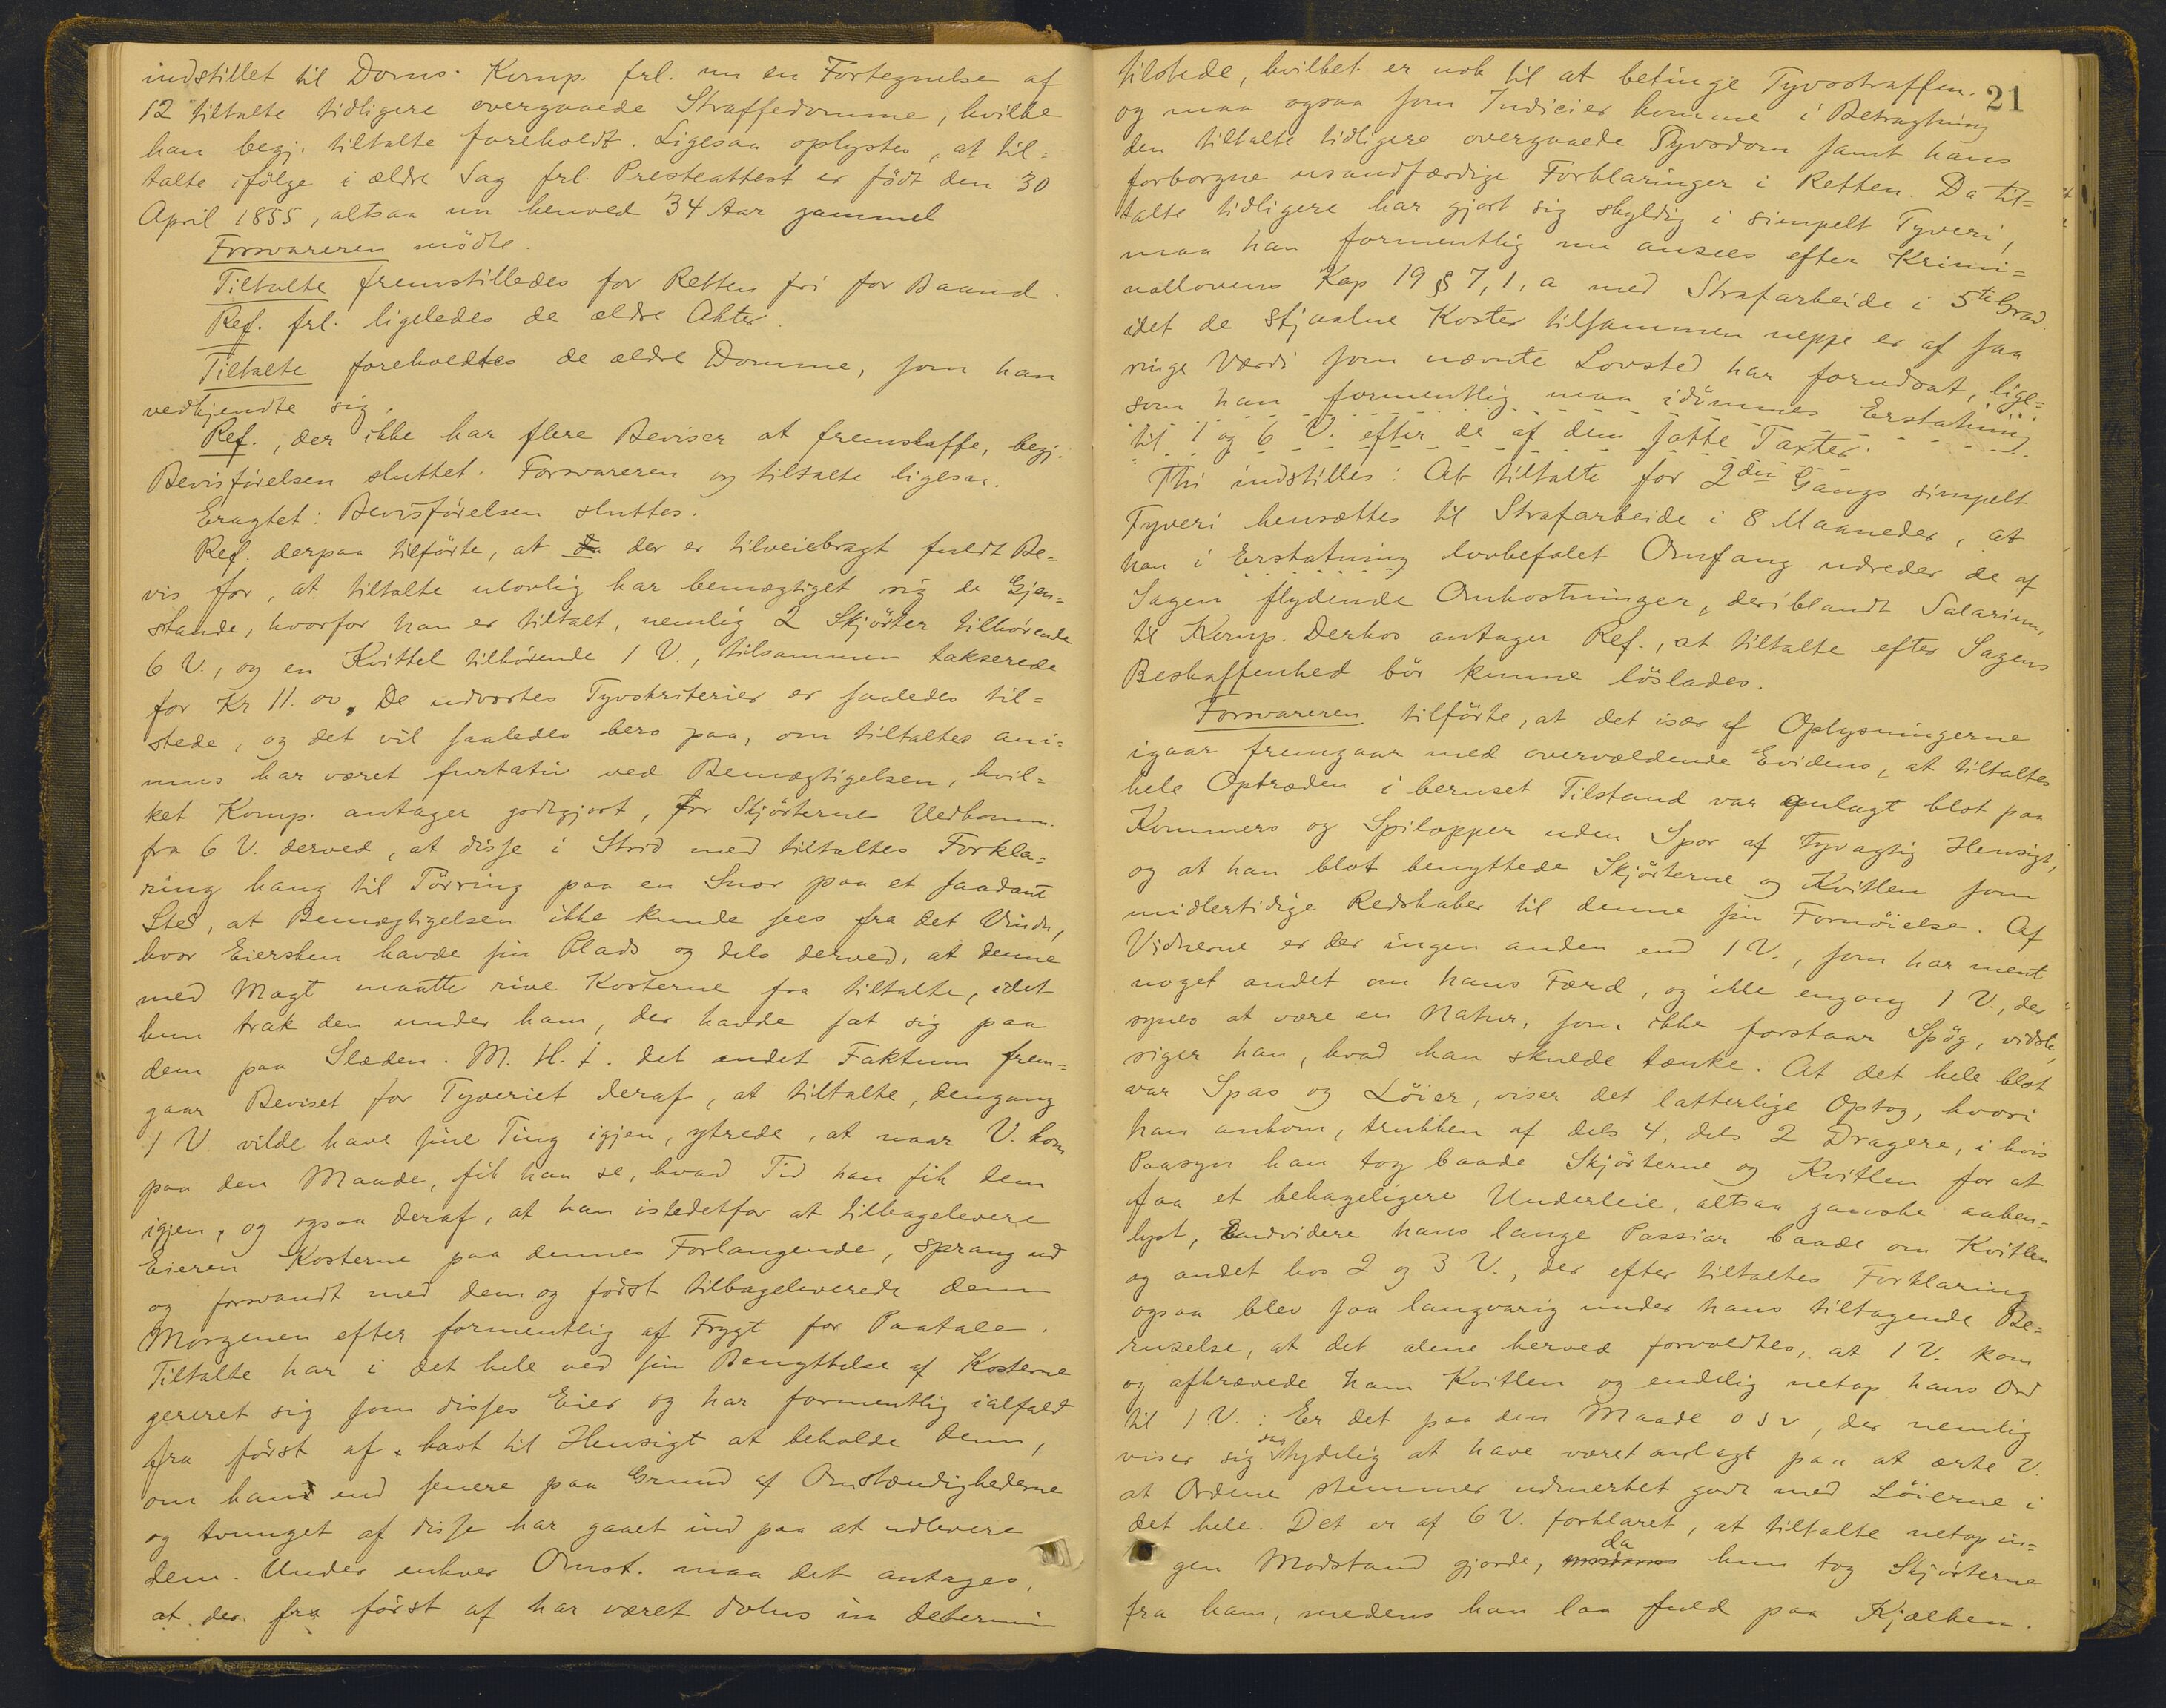 indstillet til Doms. Komp. frl. nu en Fortegnelse af
12 tiltalte tidligere overgaaede Straffedomme, hvilke
han begj. tiltalte foreholdt. Ligesaa oplystes, at til=
talte ifölge i ældre Sag frl. Presteattest er födt den 30
April 1855, altsaa nu henved 34 Aar gammel
Forsvareren mödte.
Tiltalte fremstilledes for Retten fri for Baand.
Ref. frl. ligeledes de ældre Akter.
Tiltalte foreholdtes de ældre Domme, som han
vedkjendte sig.
Ref., der ikke har flere Beviser at fremskaffe, begj.
Bevisförelsen sluttet. Forsvareren og tiltalte ligesaa.
Eragtet: Bevisförelsen sluttes.
Ref. derpaa tilförte, at da der er tilveiebragt fuldt Be=
vis for, at tiltalte ulovlig har bemægtiget sig de Gjen=
stande, hvorfor han er tiltalt, nemlig 2 Skjörter tilhörende
6 V., og en Kvittel tilhörende 1 V., tilsammen takserede
for Kr 11.00, De udvortes Tyvskriterier er saaledes til=
stede, og det vil saaledes bero paa, om tiltaltes ani=
mus har været furtativ ved Bemægtigelsen, hvil=
ket Komp. antager godtgjort, for Skjörternes Vedkomm.
fra 6 V. derved, at disse i Strid med tiltaltes Forkla=
ring hang til Törring paa en Snor paa et saadant
Sted, at Bemægtigelsen ikke kunde sees fra det Vindu,
hvor Eiersken havde sin Plads og dels derved, at denne
med Magt maatte rive Kosterne fra tiltalte, idet
hun trak den under ham, der havde sat sig paa
dem paa Slæden. M. H. t. det andet Faktum frem=
gaar Beviset for Tyveriet deraf, at tiltalte, dengang
1 V. vilde have sine Ting igjen, ytrede, at naar V. kom
paa den Maade, fik han se, hvad Tid han fik dem
igjen, og ogsaa deraf, at han istedetfor at tilbagelevere
Eieren Kosterne paa dennes Forlangende, sprang ud
og forsvandt med dem og först tilbageleverede dem
Morgenen efter formentlig af Frygt for Paatale.
Tiltalte har i det hele ved sin Benyttelse af Kosterne
gereret sig som disses Eier og har formentlig ialfald
fra först af havt til Hensigt at beholde dem,
om han end senere paa Grund af Omstændighederne
og tvunget af disse har gaaet ind paa at udlevere
dem. Under enhver Omst. maa det antages,
at der fra först af har været dolus in determi
21
tilstede, hvilket er nok til at betinge Tyvsstraffen.
og maa ogsaa som Indicier komme i Betragtning
den tiltalte tidligere overgaaede Tyvsdom samt hans
forborgne usandfærdige Forklaringer i Retten. Da til=
talte tidligere har gjort sig skyldig i simpelt Tyveri,
maa han formentlig nu ansees efter Krimi=
nallovens Kap 19 § 7, 1, a med Strafarbeide i 5te Grad.
idet de stjaalne Koster tilsammen neppe er af saa
ringe Værdi som nævnte Lovsted har forudsat, lige=
som han formentlig maa idömmes Erstatning
til 1 og 6 V. efter de af dem satte Taxter.
Thi indstilles: At tiltalte for 2den Gangs simpelt
Tyveri hensættes til Strafarbeide i 8 Maaneder, at
han i Erstatning lovbefalet Omfang udreder de af
Sagen flydende Omkostninger, deriblandt Salarium,
til Komp. Derhos antager Ref., at tiltalte efter Sagens
Beskaffenhed bör kunne löslades.
Forsvareren tilförte, at det især af Oplysningerne
igaar fremgaar med overvældende Evidens, at tiltaltes
hele Optræden i beruset Tilstand var anlagt blot paa
Kommers og Spilopper uden Spor af tyvagtig Hensigt,
og at han blot benyttede Skjörterne og Kvitlen som
midlertidige Redskaber til denne sin Fornöielse. Af
Vidnerne er der ingen anden end 1 V., som har ment
noget andet om hans Færd, og ikke engang 1 V., der
synes at være en Natur, som ikke forstaar Spög, vidste,
siger han, hvad han skulde tænke. At det hele blot
var Spas og Löier, viser det latterlige Optog, hvori
han ankom, trukken af dels 4, dels 2 Dragere, i hvis
Paasyn han tog baade Skjörterne og Kvitlen for at
faa et behageligere Underleie, altsaa ganske aaben=
lyst, Endvidere hans lange Passiar baade om Kvitlen
og andet hos 2 og 3 V., der efter tiltaltes Forklaring
ogsaa blev saa langvarig under hans tiltagende Be=
ruselse, at det alene herved forvoldtes, at 1 V. kom
og afkrævede ham Kvitlen og endelig netop hans Ord
til 1 V.: Er det paa den Maade osv, der nemlig
viser sig tydelig at have været anlagt paa at ærte V.
at Ordene stemmer udmerket godt med Löierne i
det hele. Det er af 6 V. forklaret, at tiltalte netop in=
gen Modstand gjorde, da hun tog Skjörterne
fra ham, medens han laa fuld paa Kjælken.